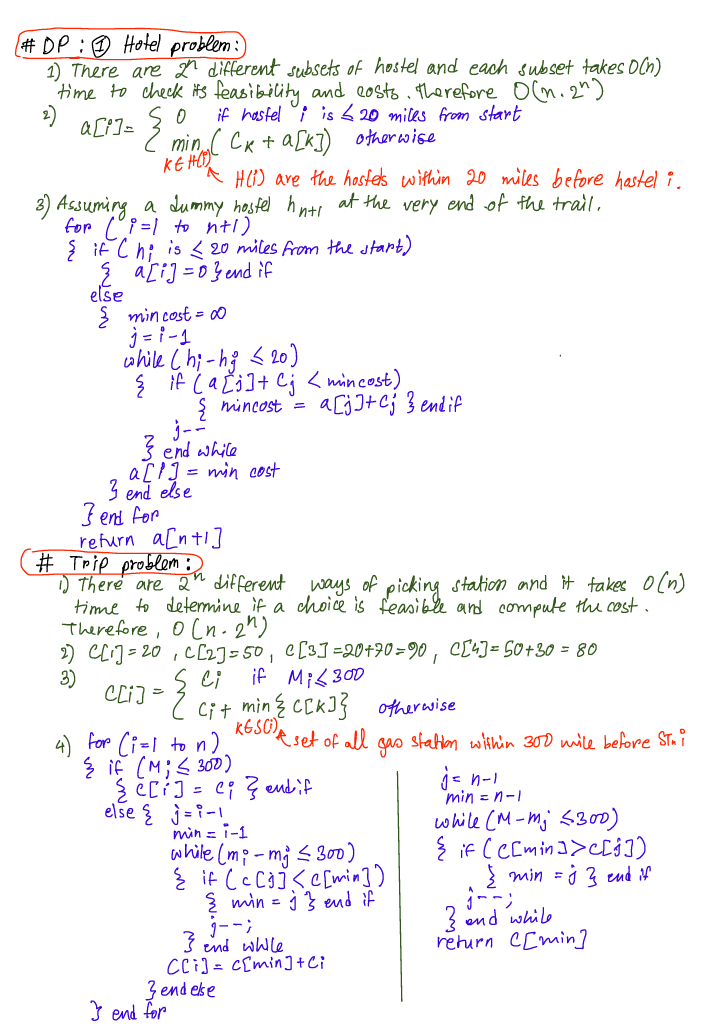 # DP : ① Hotel problem:
1) There are 2^n different subsets of hostel and each subset takes O(n)
time to check its feasibility and costs. Therefore O(n. 2^n)
2) a[i]= { 0 if hostel i is ≤ 20 miles from start
min (C_K + a[K]) otherwise
K ∈ H(i)
H(i) are the hostels within 20 miles before hostel i.
3) Assuming a dummy hostel h_n+1 at the very end of the trail.
for ( i=1 to n+1)
{ if ( h_i is ≤ 20 miles from the start)
{ a[i] = 0 } end if
else
{ min cost = ∞
j = i-1
while ( h_i - h_j ≤ 20)
{ if ( a[j]+ C_j < mincost)
{ mincost = a[j]+C_j } endif
j--
} end while
a[i] = min cost
} end else
} end for
return a[n+1]
# Trip problem :
1) There are 2^n different ways of picking station and it takes O(n)
time to determine if a choice is feasible and compute the cost.
Therefore, O (n. 2^n)
2) C[1] = 20 , C[2] = 50, C[3] = 20+70=90, C[4] = 50+30 = 80
3) C[i] = { C_i if M_i ≤ 300
C_i + min { C[K] } otherwise
K∈S(i) set of all gas station within 300 mile before Stn i
4) for (i=1 to n)
{ if (M_i ≤ 300)
{ C[i] = C_i } endif
else { j = i-1
min = i-1
while (m_i - m_j ≤ 300)
{ if ( C[j] < C[min] )
{ min = j } end if
j--;
} end while
C[i] = C[min]+C_i
} end else
} end for
j = n-1
min = n-1
while (M - m_j ≤ 300)
{ if ( C[min] > C[j])
{ min = j } end if
j--;
} end while
return C[min]